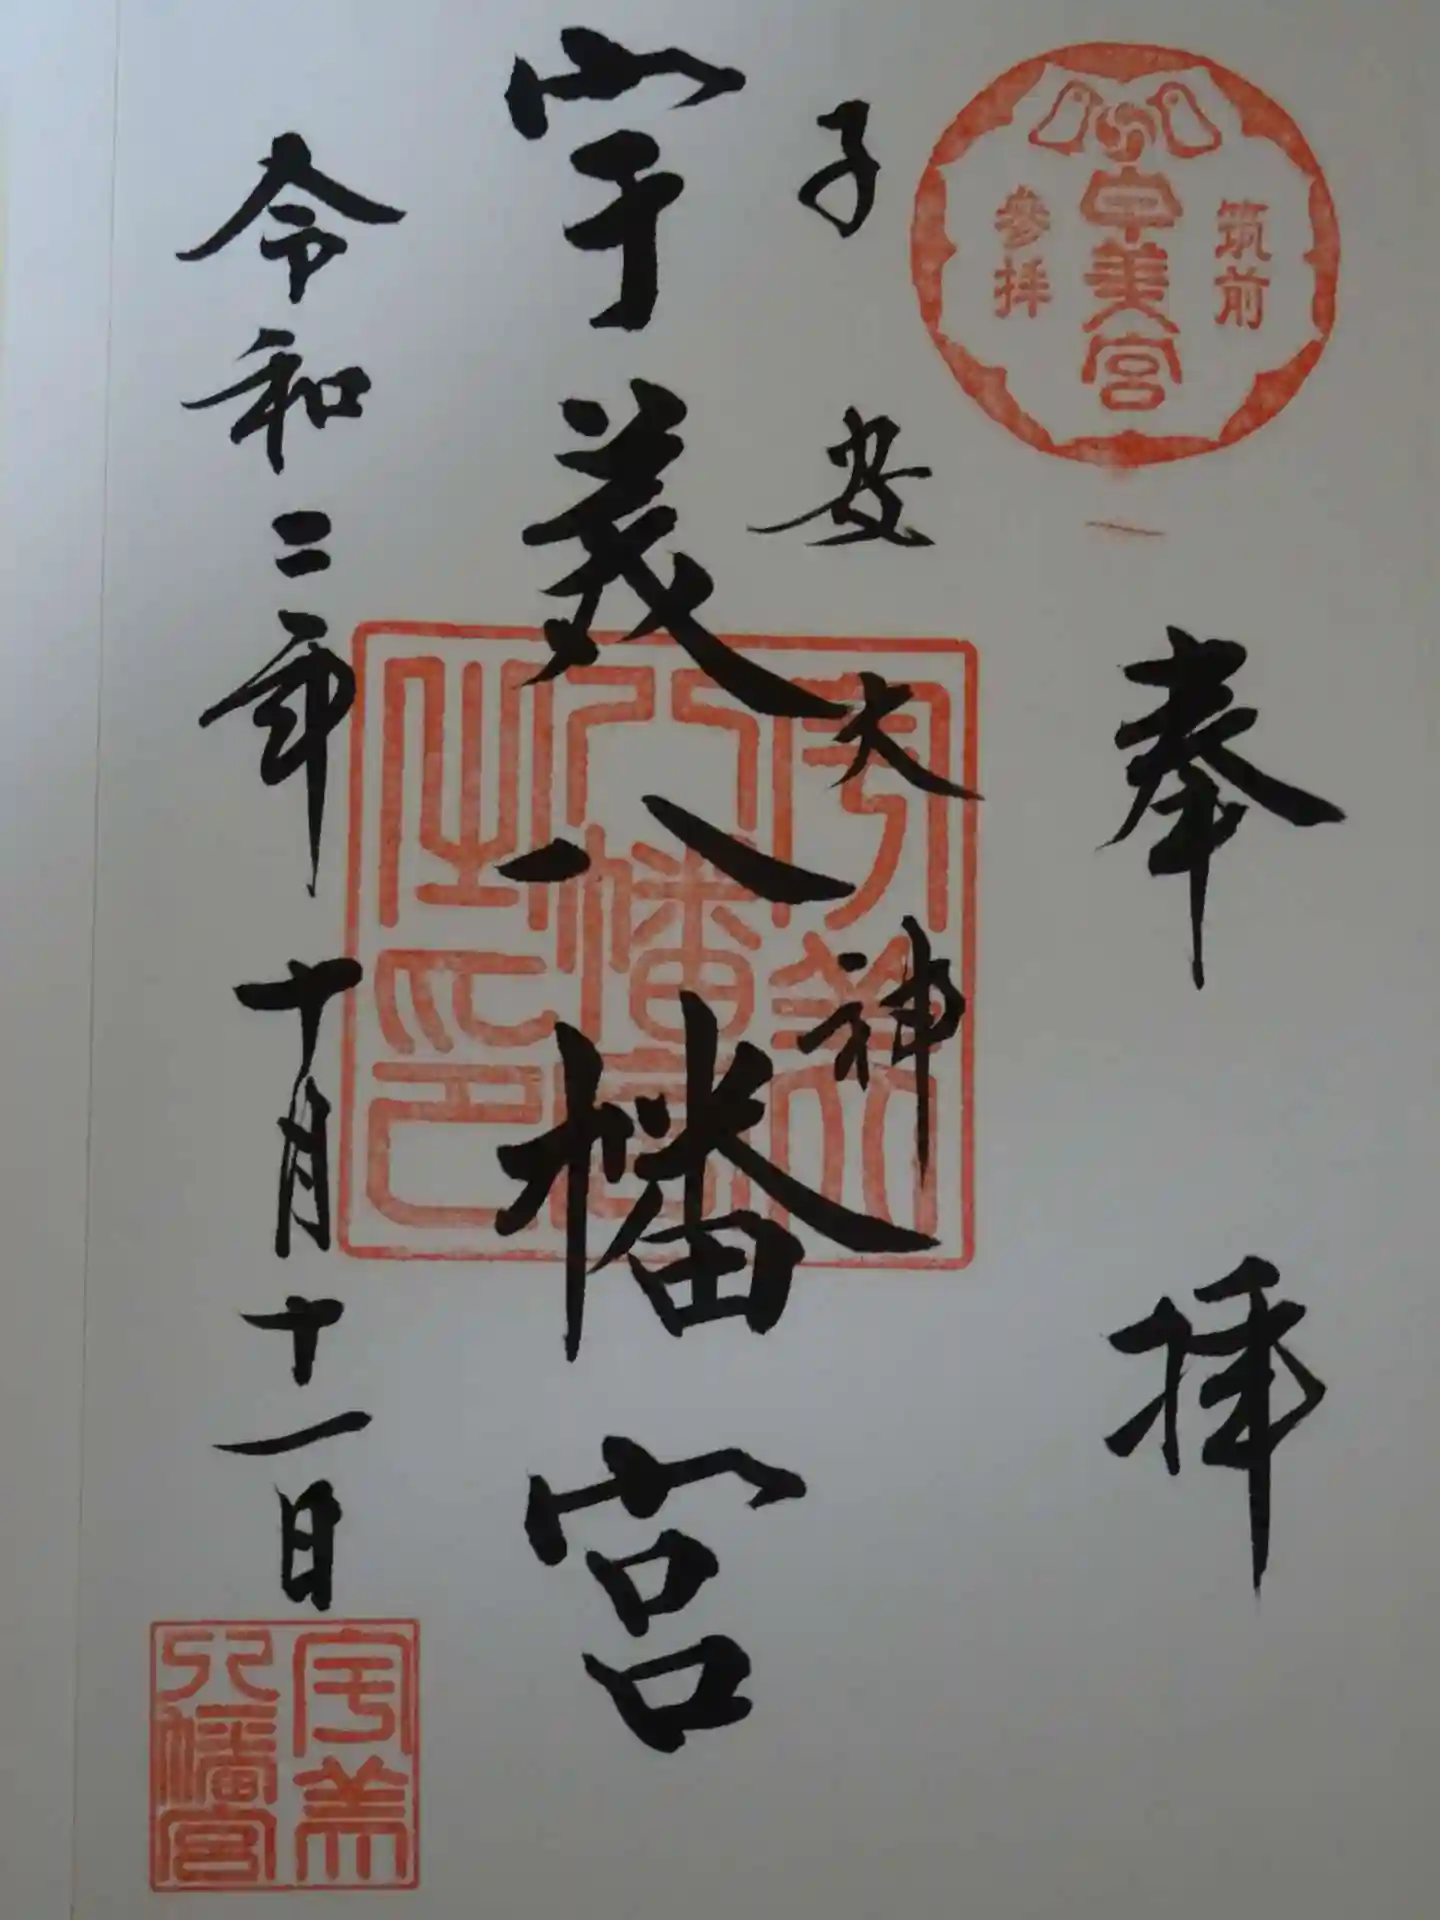 筑前
宇美宮
參拝
奉拝
子安大神
宇美八幡宮
宇美
八幡宮
之印
令和二年十月十一日
宇美
八幡宮